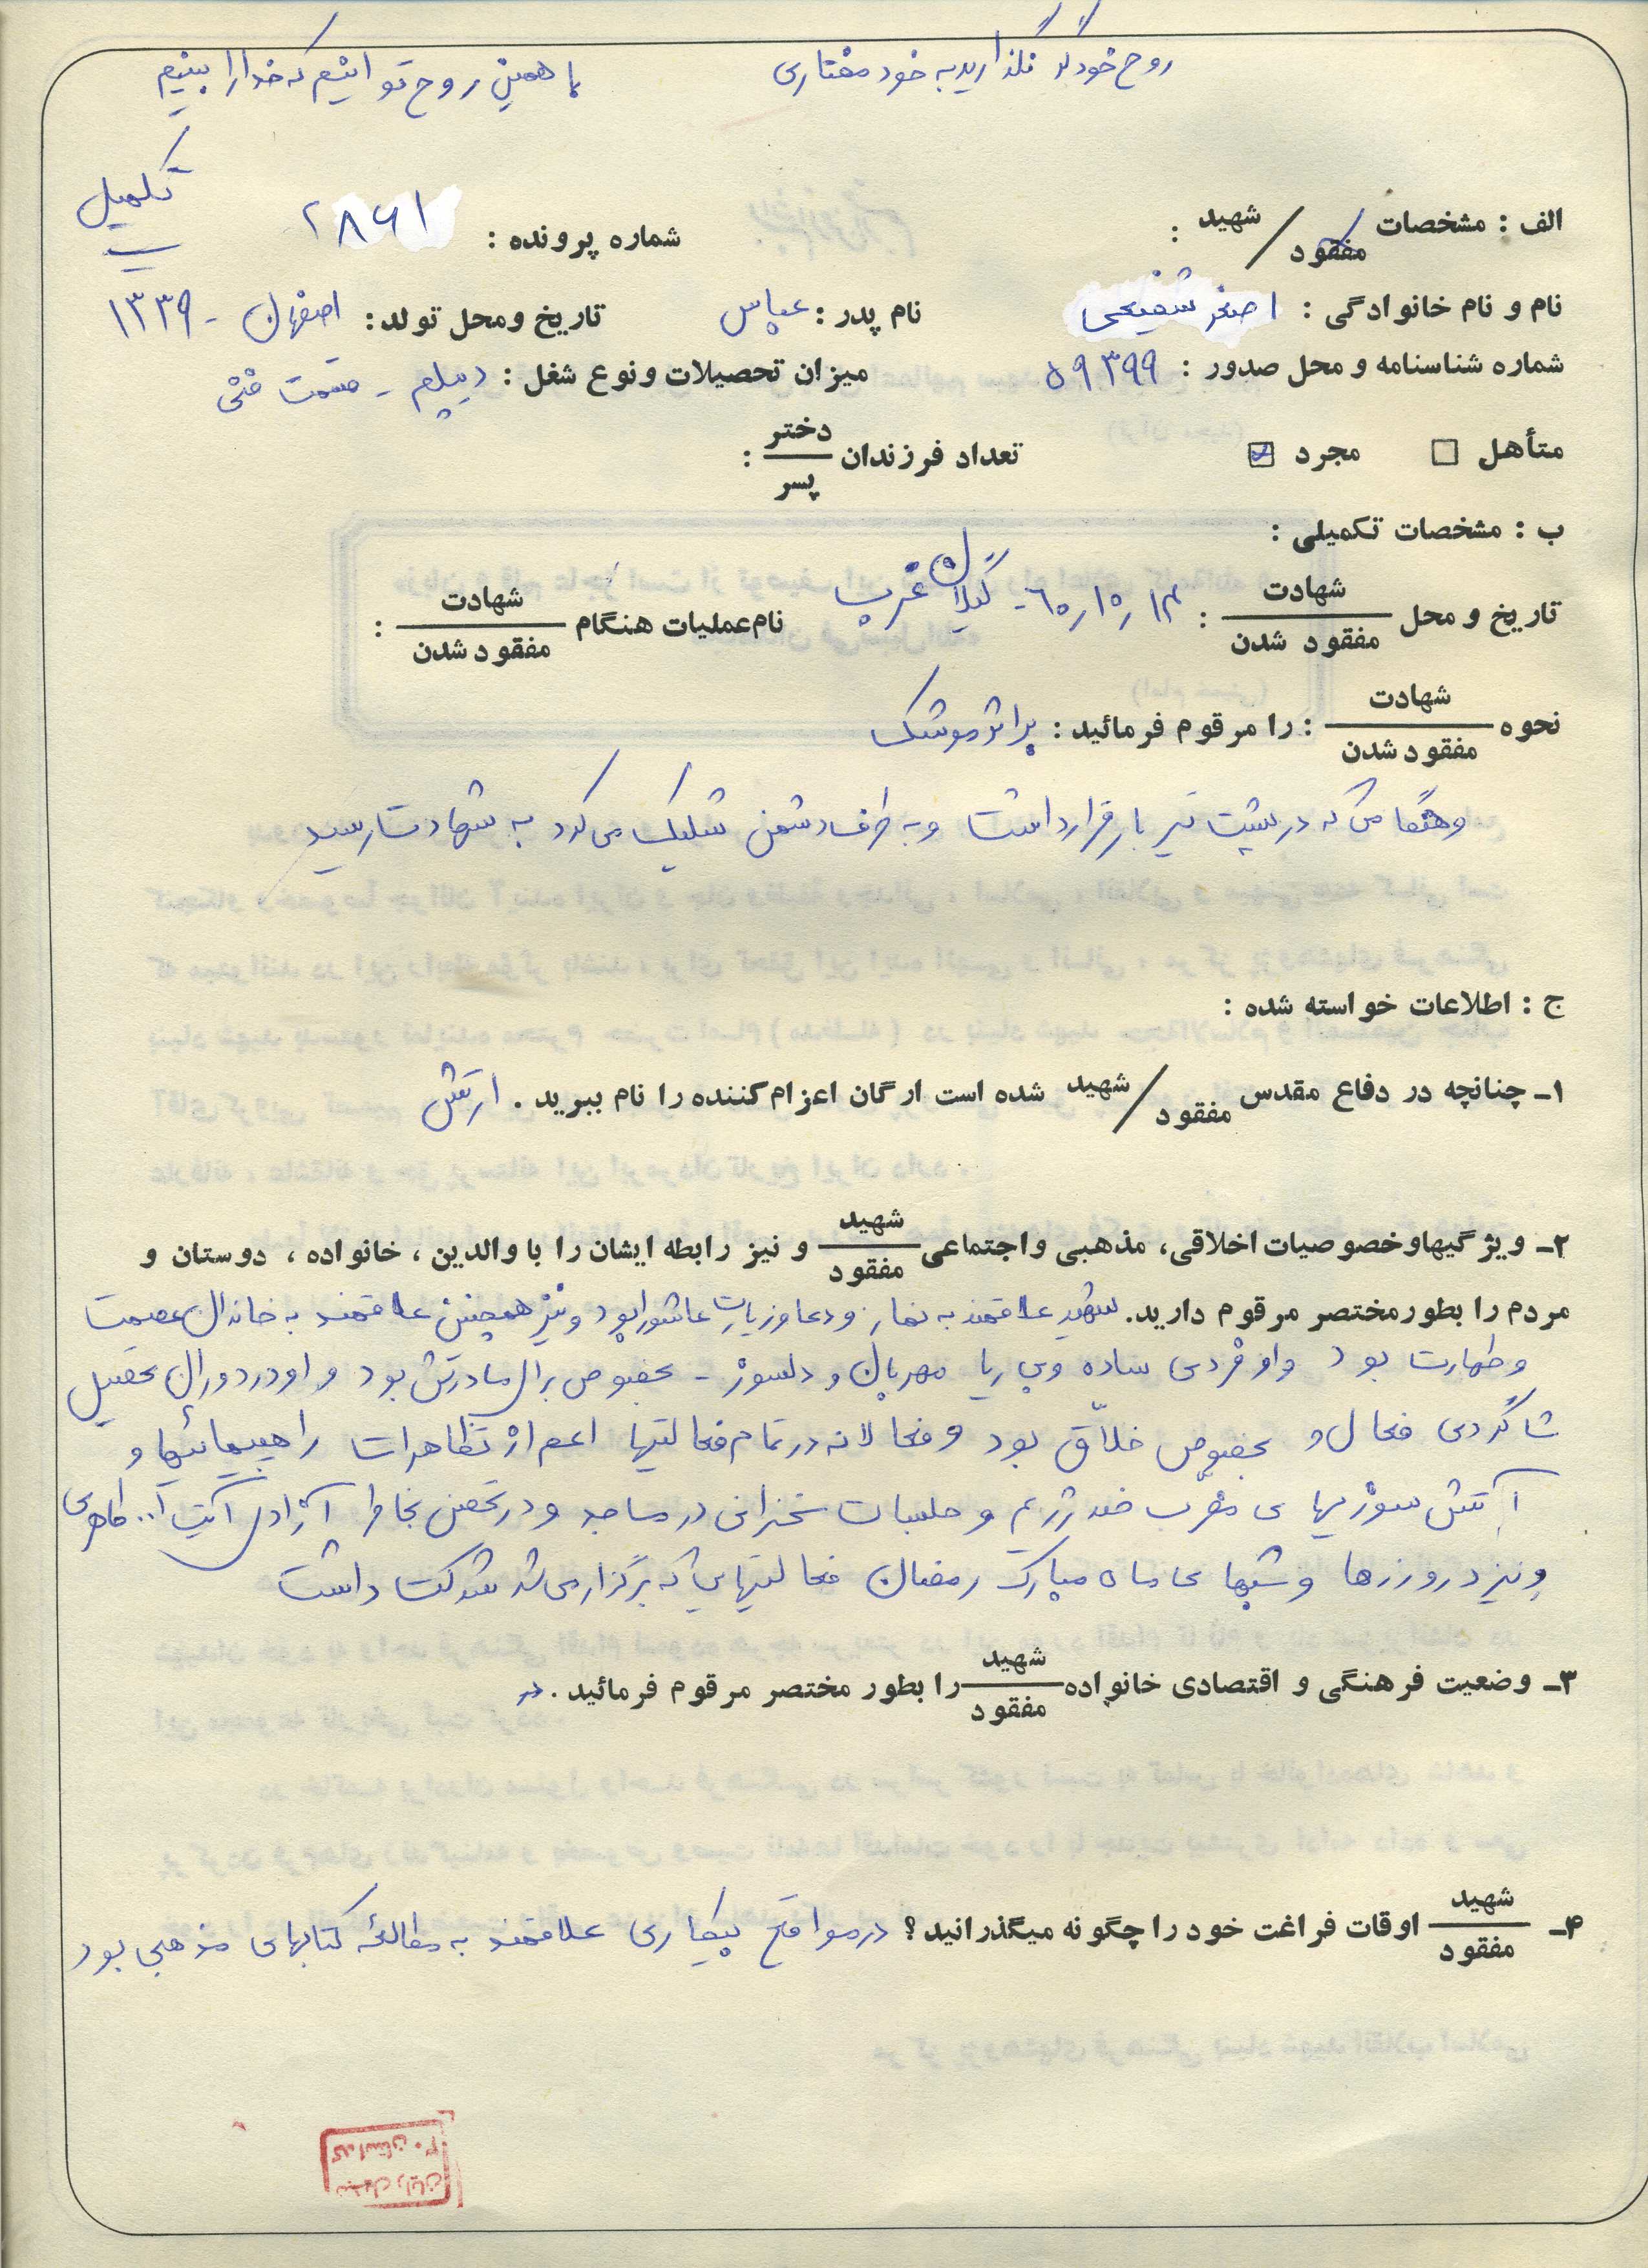 روح خود گر نگذارید به خود مختاری
با همین روح توانیم که خدا را ببینیم
تکمیل
الف : مشخصات شهید / مفقود :
شماره پرونده : ۲۸۶۱
نام و نام خانوادگی : اصغر شفیعی نام پدر : عباس تاریخ ومحل تولد : اصفهان - ۱۳۳۹
شماره شناسنامه و محل صدور : ۵۹۳۹۹ میزان تحصیلات ونوع شغل : دیپلم - قسمت فنی
متأهل مجرد تعداد فرزندان دختر / پسر :
ب : مشخصات تکمیلی :
تاریخ و محل شهادت / مفقود شدن : ۶۰٫۱۰٫۱۳ - گیلان غرب نام عملیات هنگام شهادت / مفقود شدن :
نحوه شهادت / مفقود شدن : را مرقوم فرمائید : براثر موشک
وهنگامی که در پشت تیر بار قرار داشت و به طرف دشمن شلیک می کرد به شهادت رسید
ج : اطلاعات خواسته شده :
۱ـ چنانچه در دفاع مقدس شهید / مفقود شده است ارگان اعزام کننده را نام ببرید . ارتش
۲ـ ویژگیهاوخصوصیات اخلاقی، مذهبی واجتماعی شهید / مفقود و نیز رابطه ایشان را با والدین ، خانواده ، دوستان و
مردم را بطور مختصر مرقوم دارید. شهید علاقمند به نماز و دعا و زیارت عاشورا بود و نیز همچنین علاقمند به خاندان عصمت
و طهارت بود و او فردی ساده و بی ریا مهربان و دلسوز - بخصوص برای مادرش بود و او در دوران تحصیل
شاگردی فعال و بخصوص خلاّق بود و فعالانه در تمام فعالیتها اعم از تظاهرات راهپیمائیها و
آتش سوزیهای مخرب ضد رژیم و جلسات سخنرانی در مساجد و در تحصن بخاطر آزادی آیت ا.. طاهری
و نیز در روزها و شبهای ماه مبارک رمضان فعالیتهایی که برگزار می شد شرکت داشت
۳ـ وضعیت فرهنگی و اقتصادی خانواده شهید / مفقود را بطور مختصر مرقوم فرمائید .
۴ـ شهید / مفقود اوقات فراغت خود را چگونه میگذرانید؟ در مواقع بیکاری علاقمند به مطالعه کتابهای مذهبی بود